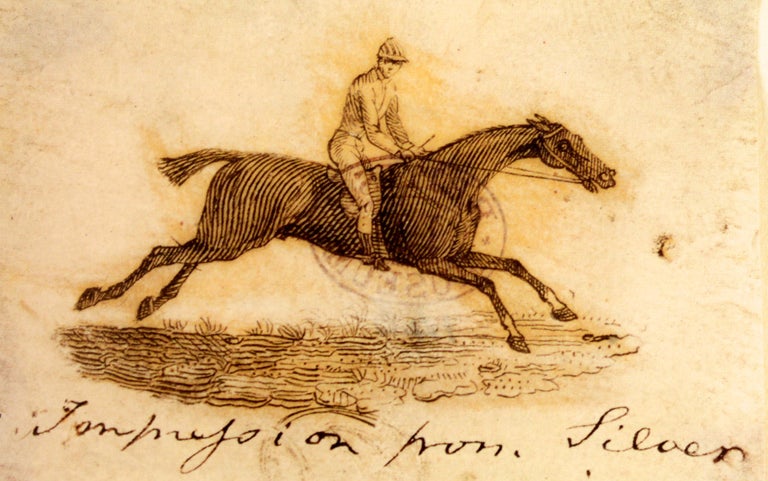 Impression from Silver